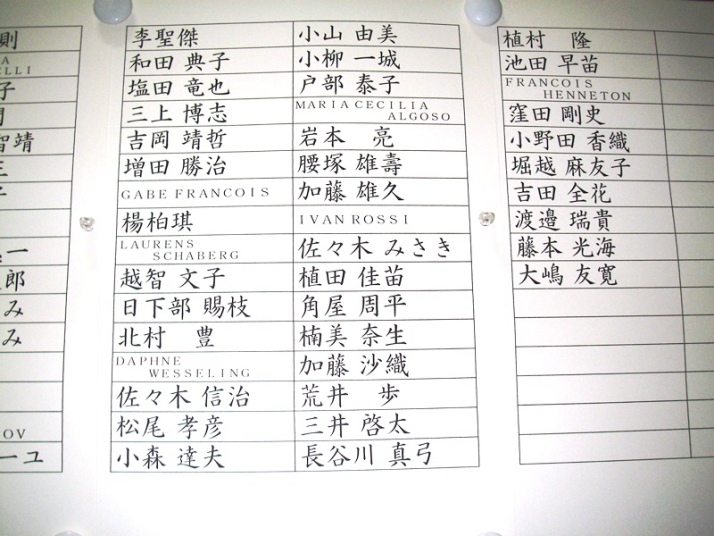 則
A
ELLI
子
智靖
三
子
一
郎
み
み
OV
ーユ
李聖傑
和田 典子
塩田 竜也
三上 博志
吉岡 靖哲
増田 勝治
GABE FRANCOIS
楊柏琪
LAURENS
SCHABERG
越智 文子
日下部 賜枝
北村 豊
DAPHNE
WESSELING
佐々木 信治
松尾 孝彦
小森 達夫
小山 由美
小柳 一城
戸部 泰子
MARIA CECILIA
ALGOSO
岩本 亮
腰塚 雄壽
加藤 雄久
IVAN ROSSI
佐々木 みさき
植田 佳苗
角屋 周平
楠美 奈生
加藤 沙織
荒井 歩
三井 啓太
長谷川 真弓
植村 隆
池田 早苗
FRANCOIS
HENNETON
窪田 剛史
小野田 香織
堀越 麻友子
吉田 全花
渡邉 瑞貴
藤本 光海
大嶋 友寛